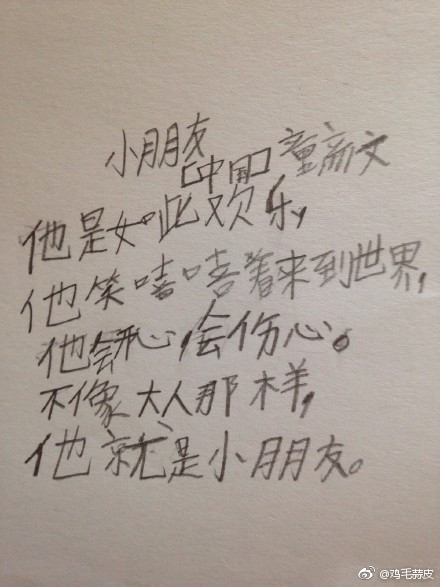 小朋友
[中国]童新文
他是如此欢乐,
他笑嘻嘻着来到世界,
他会开心,会伤心。
不像大人那样,
他就是小朋友。
@鸡毛蒜皮